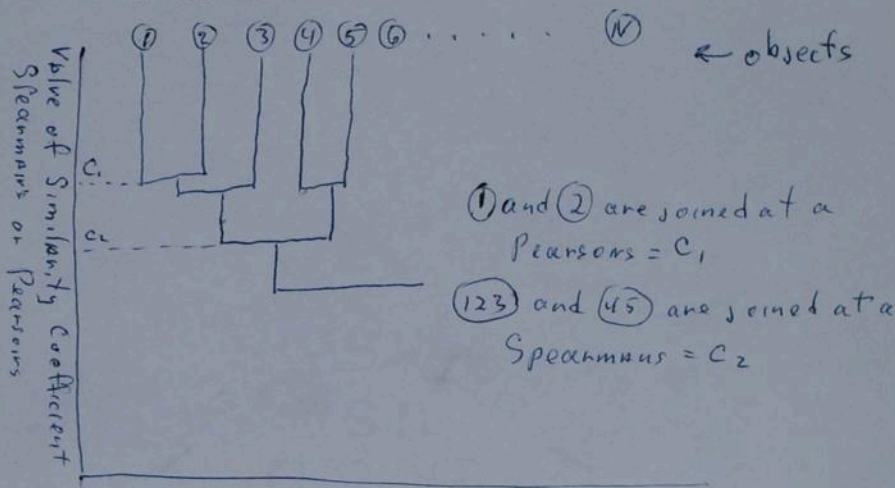 ① ② ③ ④ ⑤ ⑥ . . . . . . Ⓝ
← objects
Value of Similarity Coefficient
Spearman's or Pearsons
C₁
C₂
① and ② are joined at a
Pearsons = C₁
(123) and (45) are joined at a
Spearmans = C₂